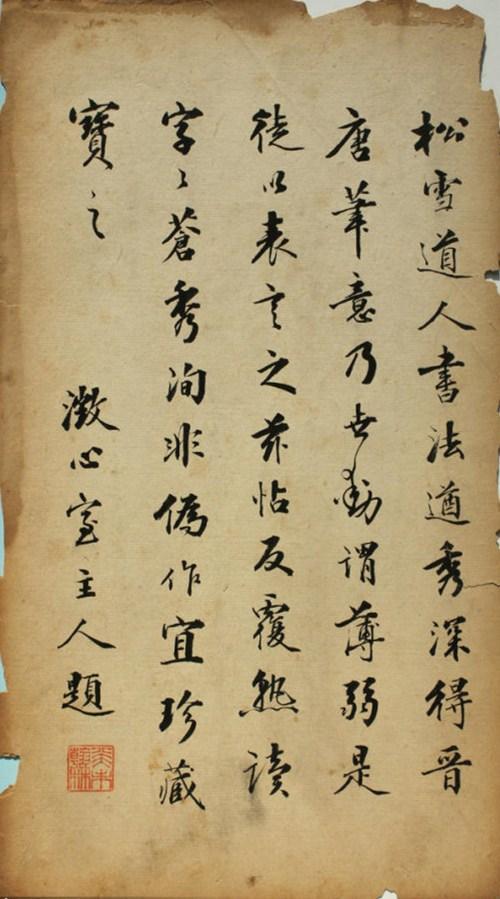 松雪道人書法遒秀深得晋
唐筆意乃世動謂薄弱是
徒以表言之茲帖反覆熟讀
字々蒼秀洵非偽作宜珍藏
寶之
澂心室主人題